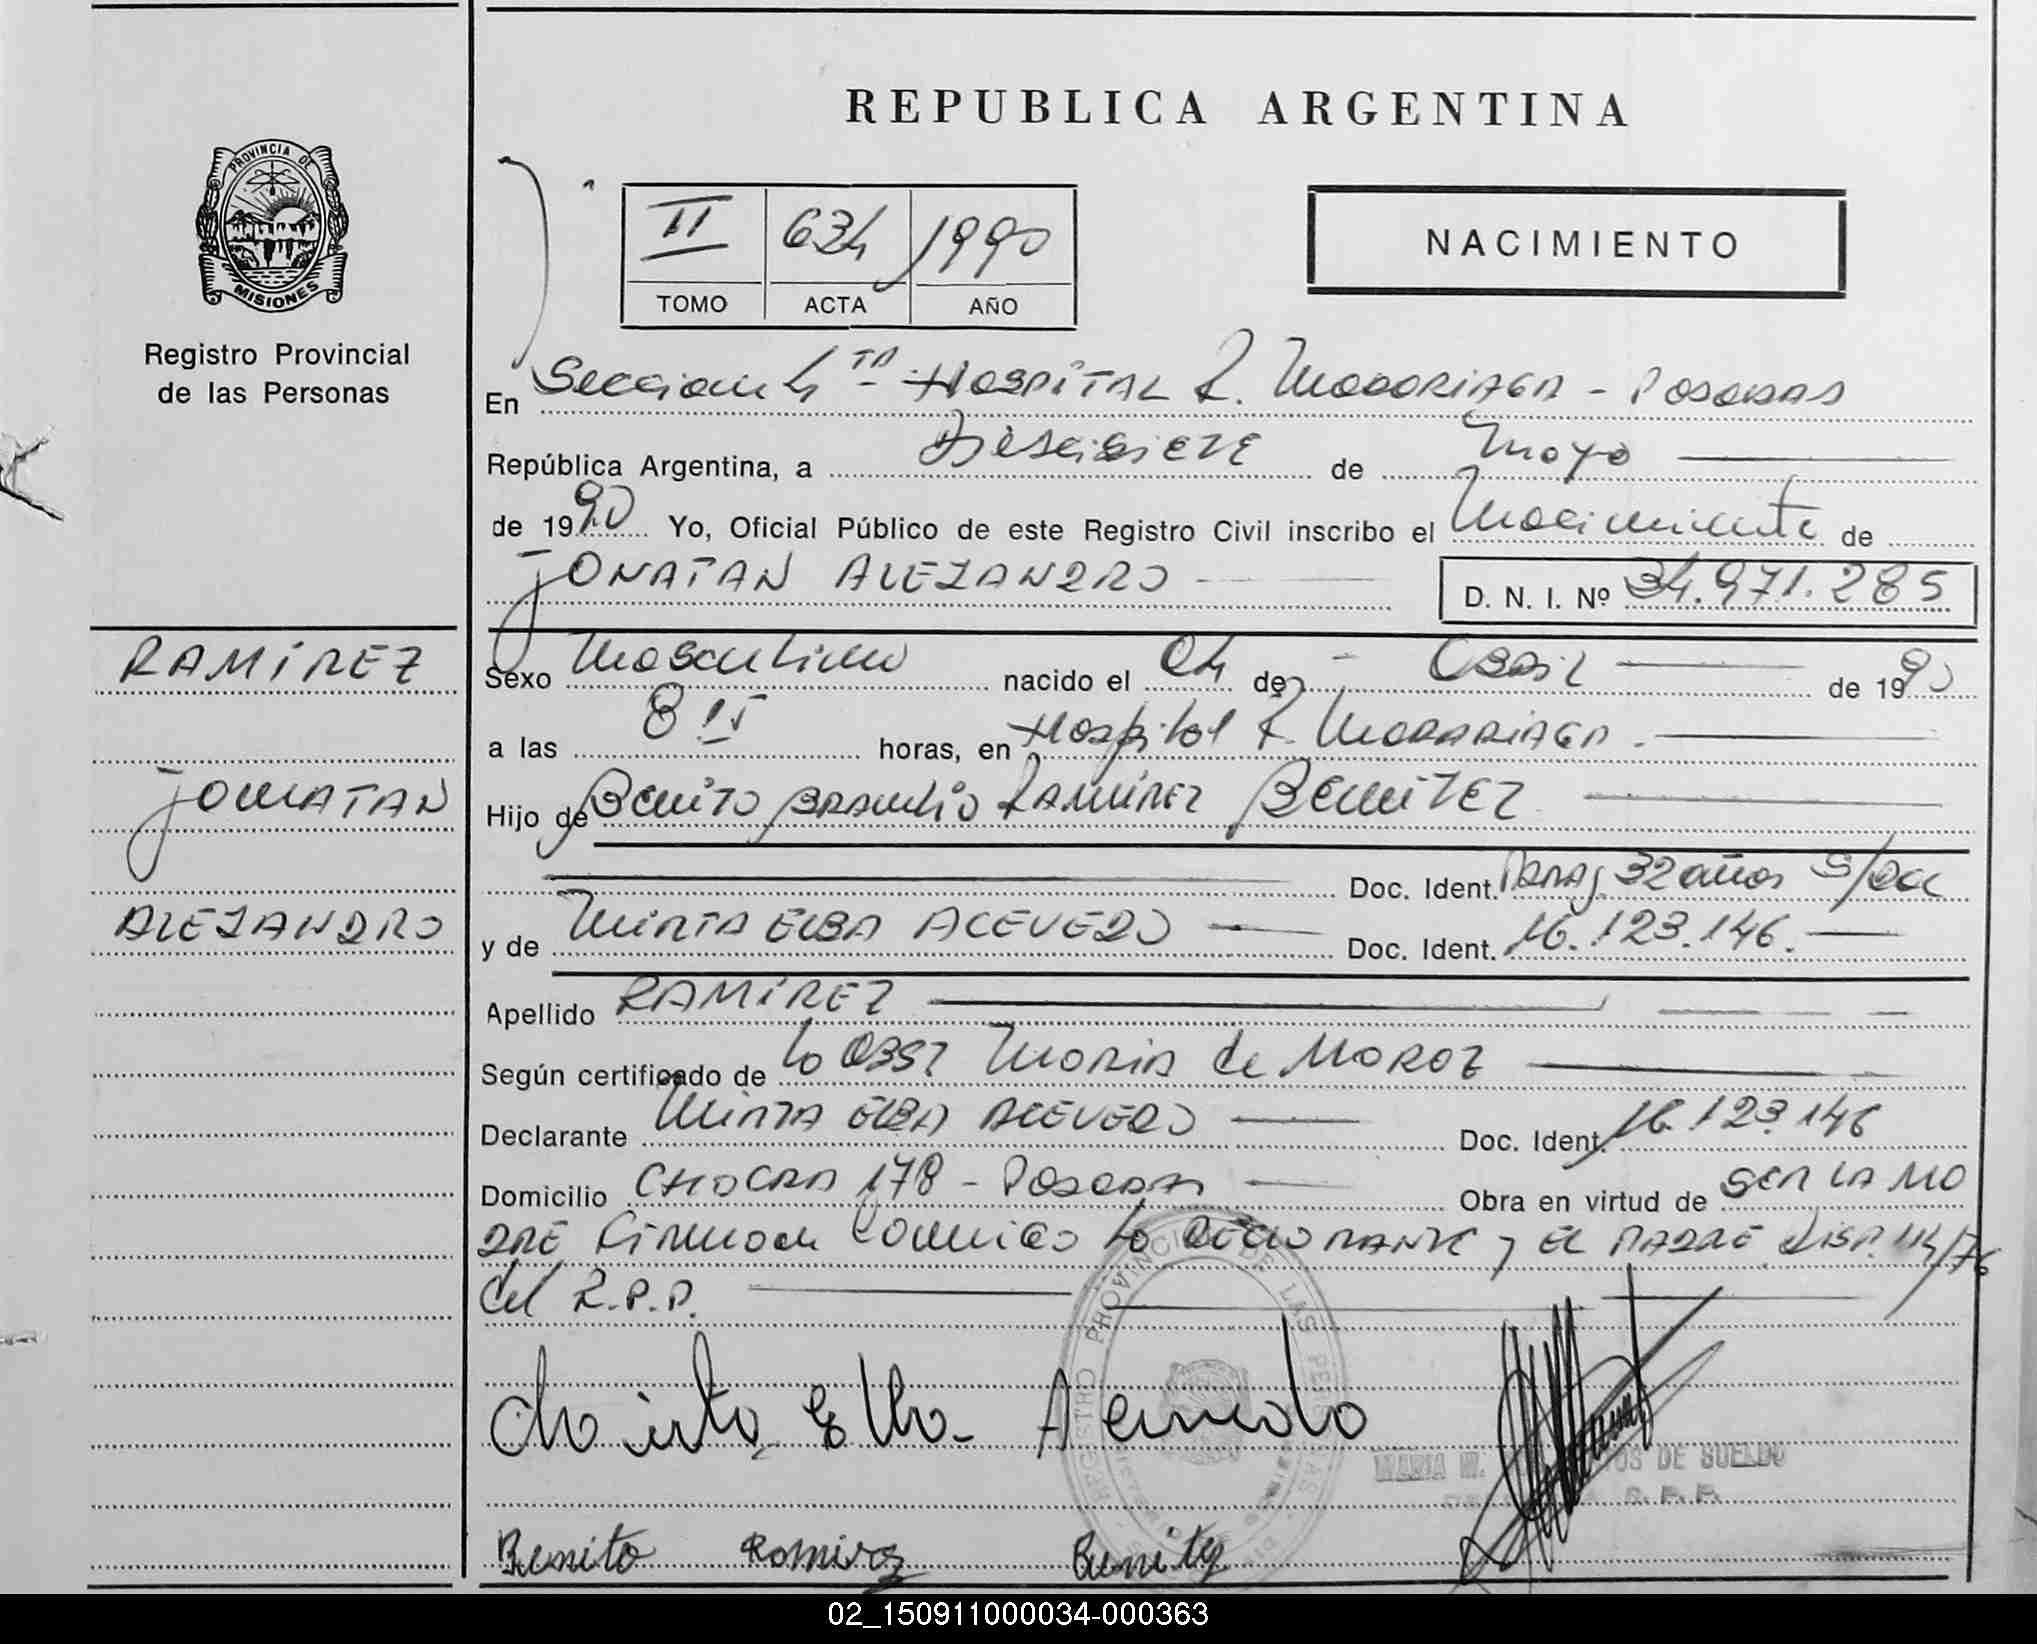 REPUBLICA ARGENTINA
PROVINCIA DE
MISIONES
Registro Provincial
de las Personas
II 634 1990
TOMO ACTA AÑO
NACIMIENTO
En Seccion 4 TA Hospital R. Madariaga - Posadas
República Argentina, a Diecisiete de Mayo
de 1990 Yo, Oficial Público de este Registro Civil inscribo el Nacimiento de
JONATAN ALEJANDRO D. N. I. Nº 34.971.285
RAMÍREZ
JONATAN
ALEJANDRO
Sexo Masculino nacido el 04 de Abril de 1990
a las 8 15 horas, en Hospital R. Madariaga.
Hijo de Benito Braulio Ramírez Benítez
Doc. Ident. Parag. 32 años S/Doc
y de Mirta Elba ACEVEDO Doc. Ident. 16.123.146.
Apellido RAMÍREZ
Según certificado de la Obst Maria de MOROZ
Declarante Mirta Elba ACEVEDO Doc. Ident. 16.123.146
Domicilio CHACRA 178 - Posadas Obra en virtud de SER LA MA
DRE Firman Conmigo la DECLARANTE y EL PADRE Disp. 114/76
del R.P.P.
Mirta Elba Acevedo
REGISTRO PROVINCIAL DE LAS PERSONAS
MARIA M. OS DE SUELDO
R. P. P.
Benito Ramirez Benitez
02_150911000034-000363